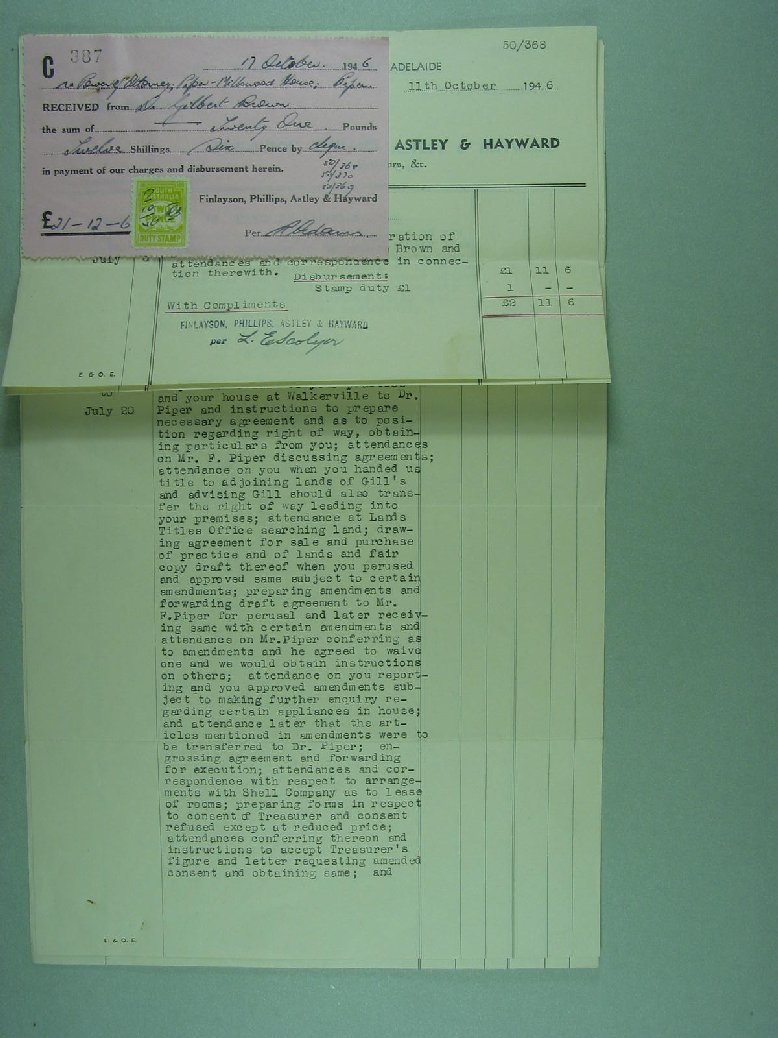 C 387
17 October. 1946
re Power of Attorney, Piper - Millswood House, Piper
RECEIVED from Dr Gilbert Brown
the sum of Twenty One Pounds
Twelve Shillings Six Pence by cheque.
in payment of our charges and disbursement herein.
50/368
50/370
50/369
Finlayson, Phillips, Astley & Hayward
£21-12-6
DUTY STAMP
Per
50/368
ADELAIDE
11th October 1946
ASTLEY & HAYWARD
&c.
ration of
Brown and
July
attendances and correspondence in connec-
tion therewith. Disbursements
£1 11 6
Stamp duty £1
1 - -
£2 11 6
With Compliments
FINLAYSON, PHILLIPS, ASTLEY & HAYWARD
per
E. & O. E.
to
and your house at Walkerville to Dr.
July 20 Piper and instructions to prepare
necessary agreement and as to posi-
tion regarding right of way, obtain-
ing particulars from you; attendances
on Mr. F. Piper discussing agreements;
attendance on you when you handed us
title to adjoining lands of Gill's
and advising Gill should also trans-
fer the right of way leading into
your premises; attendance at Lands
Titles Office searching land; draw-
ing agreement for sale and purchase
of practice and of lands and fair
copy draft thereof when you perused
and approved same subject to certain
amendments; preparing amendments and
forwarding draft agreement to Mr.
F.Piper for perusal and later receiv-
ing same with certain amendments and
attendance on Mr.Piper conferring as
to amendments and he agreed to waive
one and we would obtain instructions
on others; attendance on you report-
ing and you approved amendments sub-
ject to making further enquiry re-
garding certain appliances in house;
and attendance later that the art-
icles mentioned in amendments were to
be transferred to Dr. Piper; en-
grossing agreement and forwarding
for execution; attendances and cor-
respondence with respect to arrange-
ments with Shell Company as to lease
of rooms; preparing forms in respect
to consent of Treasurer and consent
refused except at reduced price;
attendances conferring thereon and
instructions to accept Treasurer's
figure and letter requesting amended
consent and obtaining same; and
E. & O. E.